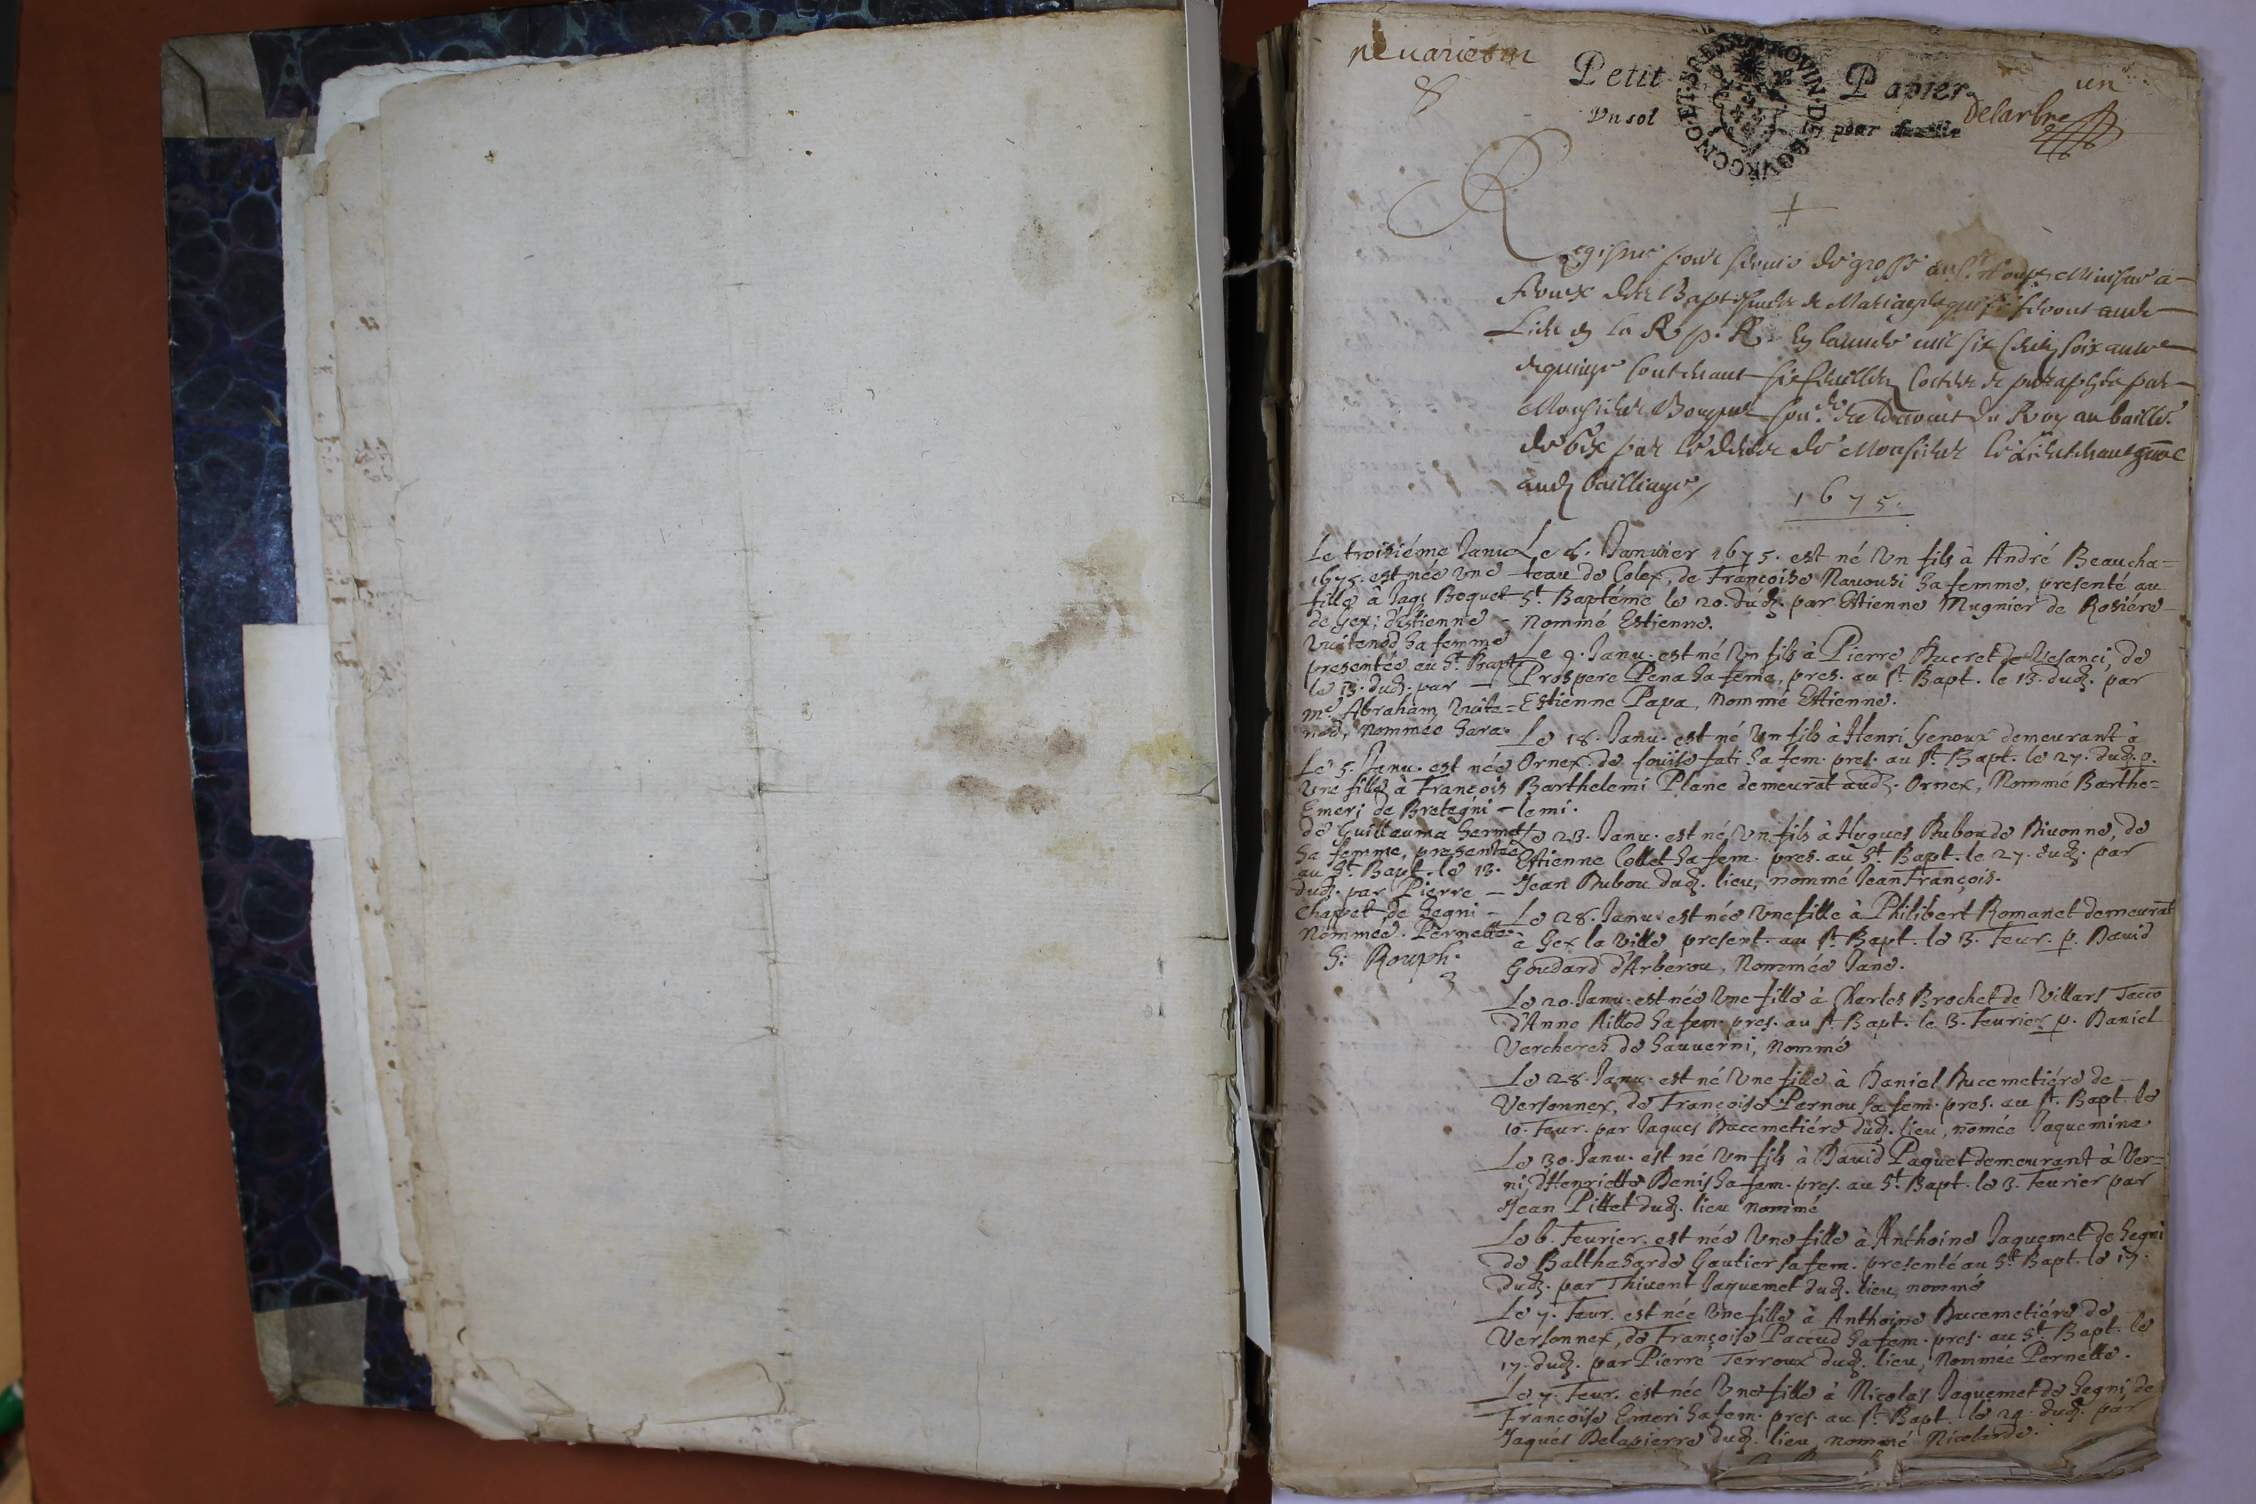 ne varietur
Petit Papier
un
Vn sol pour feuille
Delarbre
BOVRGONG·ET·BRESSE PROVIN·DE
Registre pour servir de grosse au Sr Rouph Ministre a
Fernex des Baptesmes & Mariages qui se feront aud
Lieu de la R. p. R. En lannée mil six cents soixante
& quinze Contenant six feuilles Cottées & paraphées par
Monsieur Conseiller du Roy au baille
de Gex par le de Monsieur le Lieutenant gnāl
aud bailliage
1675.
Le troisiéme Janu
1675. est née vne
fille à Jaqs Boquet
de Gex, d'Estienne
Vuitenod sa femme
presentée au St. Bapt
le 13. dud. par
me. Abraham Vuite=
nod, nommée Sara.
Le 5. Janu. est née
Vne fille à François
Emeri de Bretegni
de Guillauma Sermet
sa femme, presentée
au St. Bapt. le 13.
dud. par Pierre
Chappet de Segni
nommée. Pernette.
S. Rouph.
Le 8. Januier 1675. est né Vn fils à André Beaucha=
teau de Colex, de Françoise sa femme, presenté au
St. Baptéme le 20. dud. par Estienne Mugnier de Rosiére
Nommé Estienne.
Le 9. Janu. est né Vn fils à Pierre Ducret de Vesanci, de
Prospere Pena sa feme, pres. au St. Bapt. le 13. dud. par
Estienne Papa, nommé Estienne.
Le 18. Janu. est né Vn fils à Henri Genoux demeurant à
Ornex. de Louïse fati sa fem. pres. au St. Bapt. le 27. dud. p.
Barthelemi Plane demeurāt aud. Ornex, Nommé Barthe=
lemi.
Le 23. Janu. est né Vn fils à Hugues Dubou de Diuonne, de
Estienne Collet sa fem. pres. au St. Bapt. le 27. dud. par
Jean Dubou dud. lieu, nommé Jean François.
Le 28. Janu. est née Vne fille à Philibert Romanet demeurāt
à Gex la Ville, present. au St. Bapt. le 3. Feur. p. Dauid
Goudard d'Arberou, Nommée Jane.
Le 20. Janu. est née Vne fille à Charles Brochet de Villars Tacō
d'Anne Rillod sa fem. pres. au St. Bapt. le 3. Feurier p. Daniel
Vercheres de Sauuerni, nommé
Le 28. Janu. est né Vne fille à Daniel Ducemetiére de
Versonnex, de Françoise Pernou sa fem. pres. au St. Bapt. le
10. Feur. par Jaques Ducemetiére dud. lieu, nōmée Jaquemina
Le 30. Janu. est né Vn fils à Dauid Paquet demeurant à Ver=
ni, d'Henriette Denis sa fem. pres. au St. Bapt. le 3. Feurier par
Jean Pittet dud. lieu nommé
Le 6. Feurier. est née Vne fille à Anthoine Jaquemet de Segni
de Balthasarde Gautier sa fem. presenté au St. Bapt. le 17.
dud. par Thiuent Jaquemet dud. lieu, nommé
Le 7. Feur. est née Vne fille à Anthoine Ducemetiére de
Versonnex, de Françoise Paccud sa fem. pres. au St. Bapt. le
17. dud. par Pierre Terroux dud. lieu, nommée Pernette.
Le 7. Feur. est née Vne fille à Nicolas Jaquemet de Segni, de
Françoise Emeri sa fem. pres. au St. Bapt. le 24. dud. par
Jaques Delapierre dud. lieu, nommé Nicolarde.